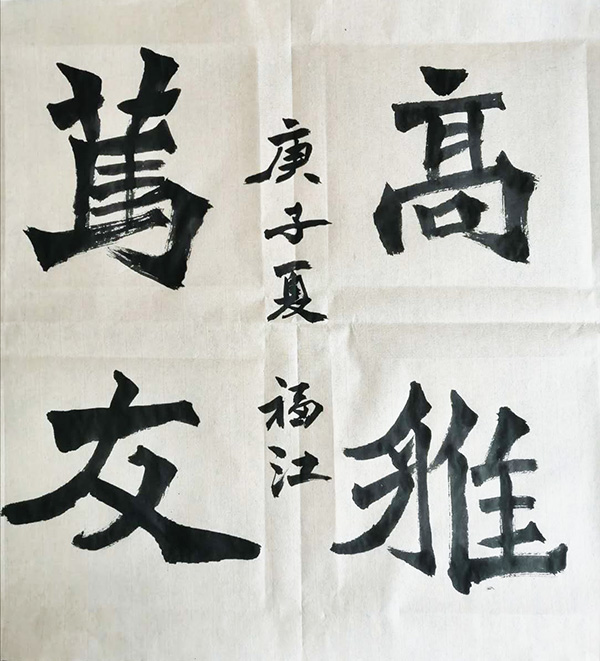 高雅
篤友
庚子夏 福江